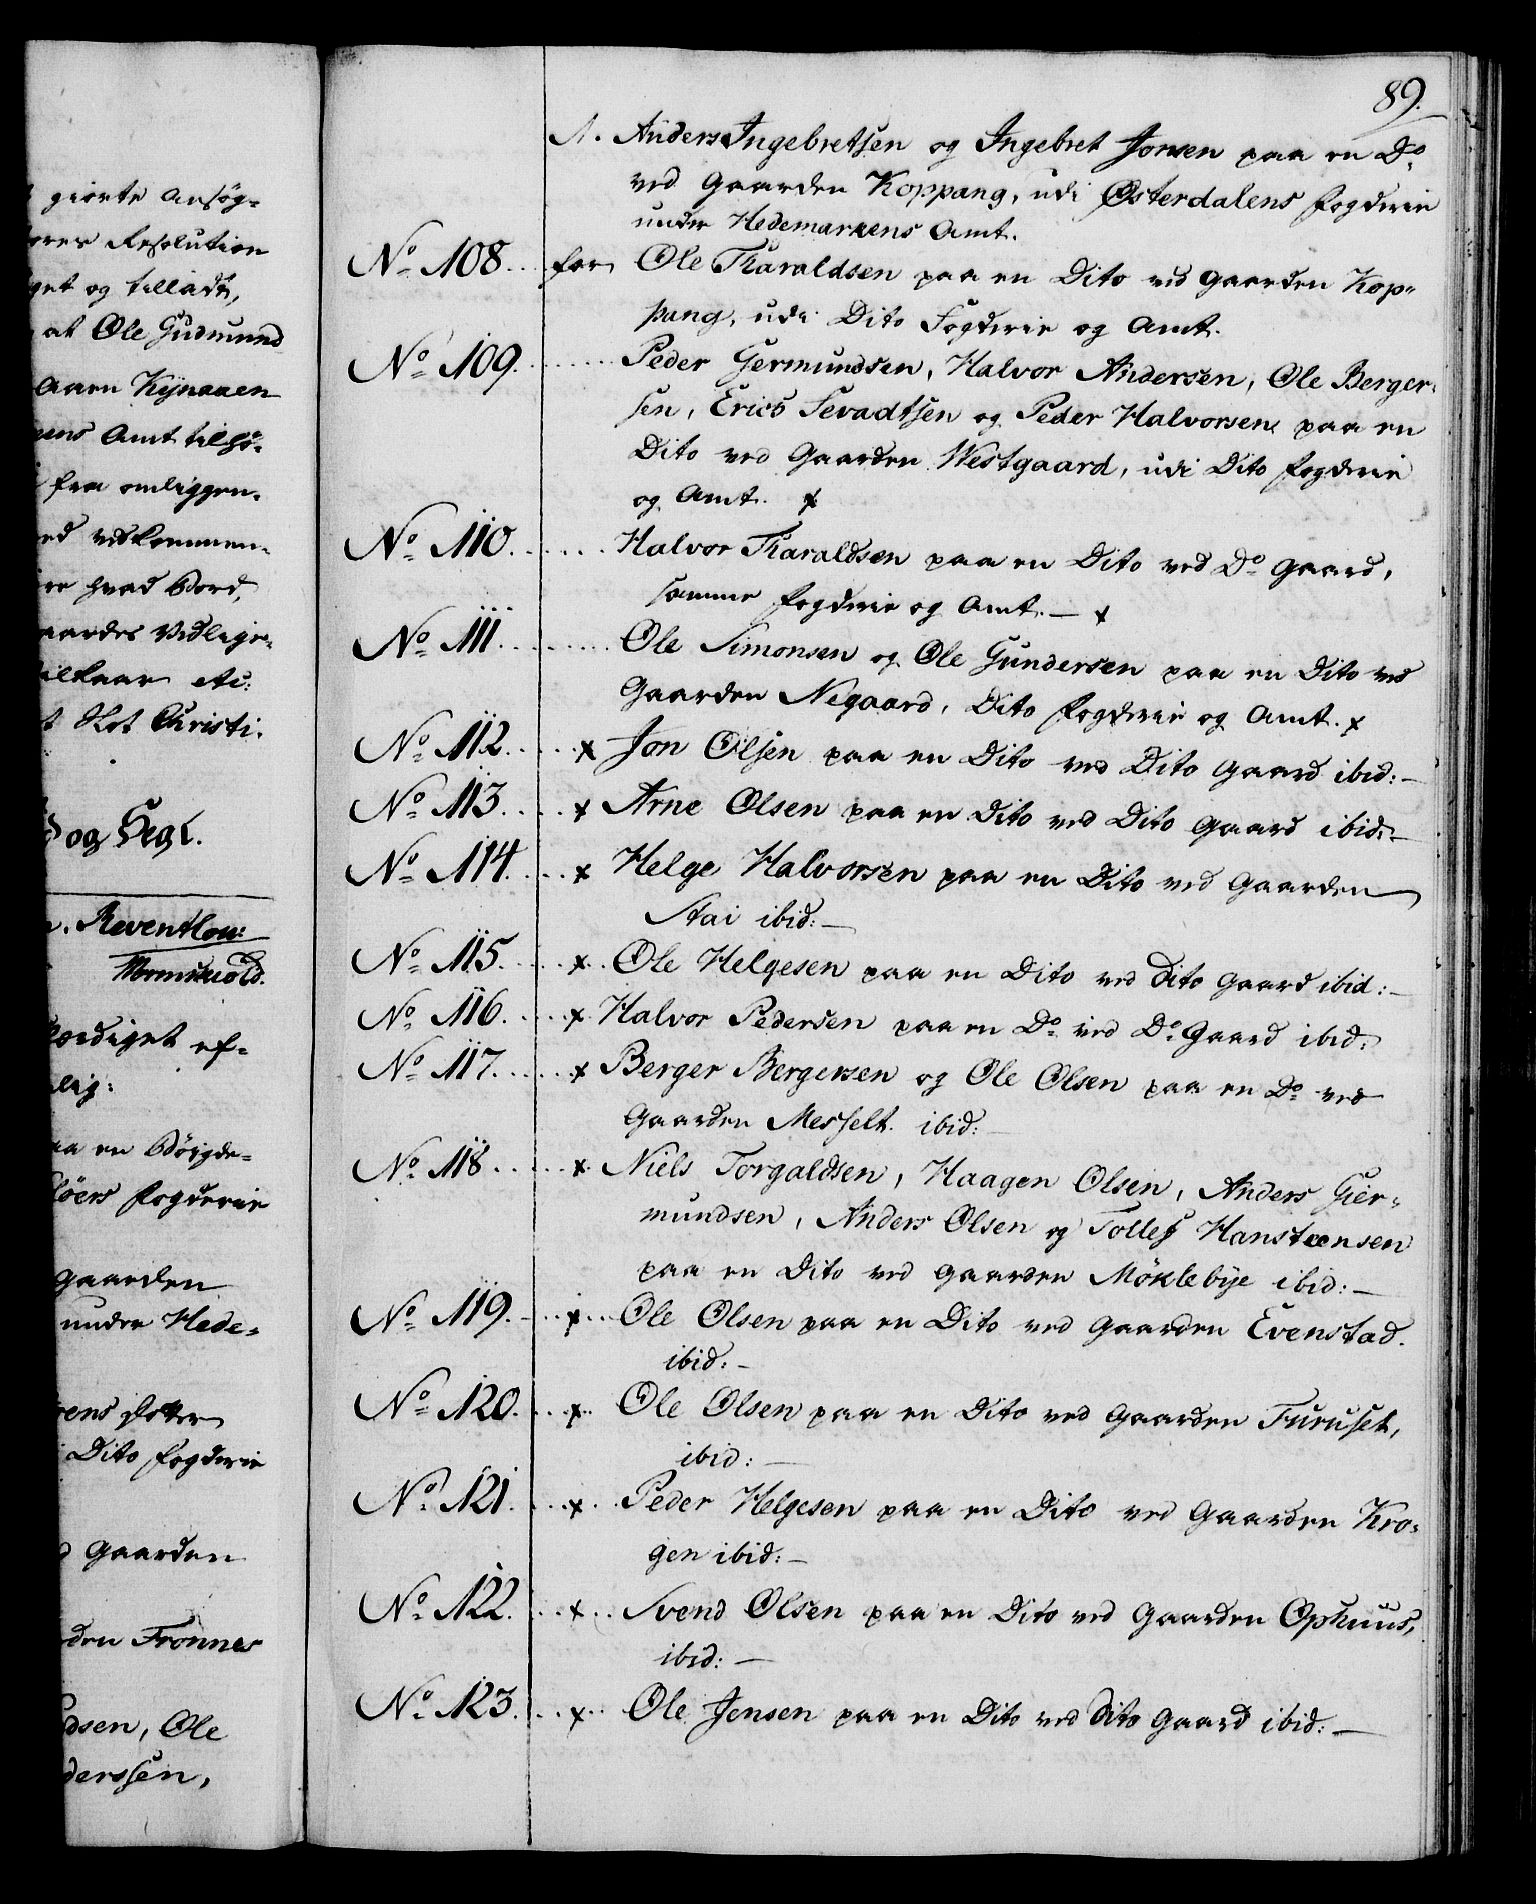 giorte Ansög-
Resolution
og tilladt,
at Ole Gudmund
Aaen Kÿnaaen
Amt tilhö-
fra omliggen-
vedkommen-
hvad Bord,
Vedlige-
Vilkaar etc:
Slot Christi-
og Segl.
Reventlou:
ef-
en Böigde-
Fogderie
Gaarden
under Hede-
Dito Fogderie
Gaarden
Fronnes
dsen, Ole
derssen,
89.
Anders Ingebretsen og Ingebret Jonsen paa en Do
ved Gaarden Koppang, udi Østerdalens Fogderie
under Hedemarkens Amt.
No 108 .... for Ole Tharaldsen paa en Dito ved Gaarden Kop-
pang, udi Dito Fogderie og Amt.
No 109. ...... Peder Germundsen, Halvor Andersen, Ole Berger-
sen, Erich Sevadtsen og Peder Halvorsen paa en
Dito ved Gaarden Westgaard, udi Dito Fogderie
og Amt. x
No 110. ...... Halvor Tharaldsen paa en Dito ved Do Gaard,
samme Fogderie og Amt. — x
No 111. ....... Ole Simonsen og Ole Gundersen paa en Dito ved
Gaarden Negaard, Dito Fogderie og Amt. x
No 112. .... x Jon Olsen paa en Dito ved Dito Gaard ibid: —
No 113. .... x Arne Olsen paa en Dito ved Dito Gaard ibid: —
No 114. .... x Helge Halvorsen paa en Dito ved Gaarden
Stai ibid: —
No 115. .... x. Ole Helgesen paa en Dito ved Dito Gaard ibid: —
No 116. .... x. Halvor Pedersen paa en Do ved Do Gaard ibid:
No 117. .... x Berger Bergersen og Ole Olsen paa en Do ved
Gaarden Messelt. ibid: —
No 118. .... x. Niels Torgaldsen, Haagen Olsen, Anders Gier-
mundsen, Anders Olsen og Tollef Hansteensen
paa en Dito ved Gaarden Möklebÿe ibid: —
No 119. .... x ... Ole Olsen paa en Dito ved Gaarden Evenstad.
ibid: —
No 120. .... x. Ole Olsen paa en Dito ved Gaarden Furuset,
ibid: —
No 121. .... x .. Peder Helgesen paa en Dito ved Gaarden Kro-
gen ibid: —
No 122. ... x .. Svend Olsen paa en Dito ved Gaarden Ophuus,
ibid: —
No 123. ... x .. Ole Jensen paa en Dito ved Dito Gaard ibid: —